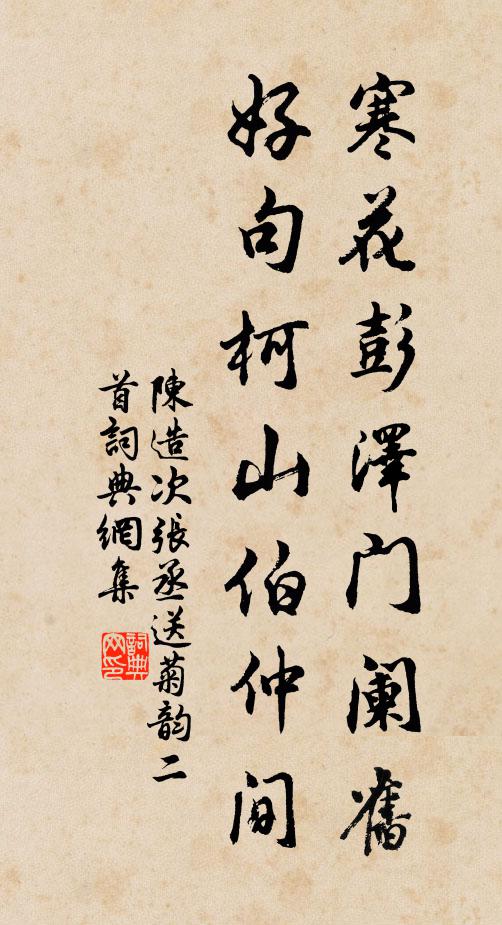 寒花彭澤門阑舊
好句柯山伯仲間
陳造次張丞送菊韵二
首詞典網集
詞典網印